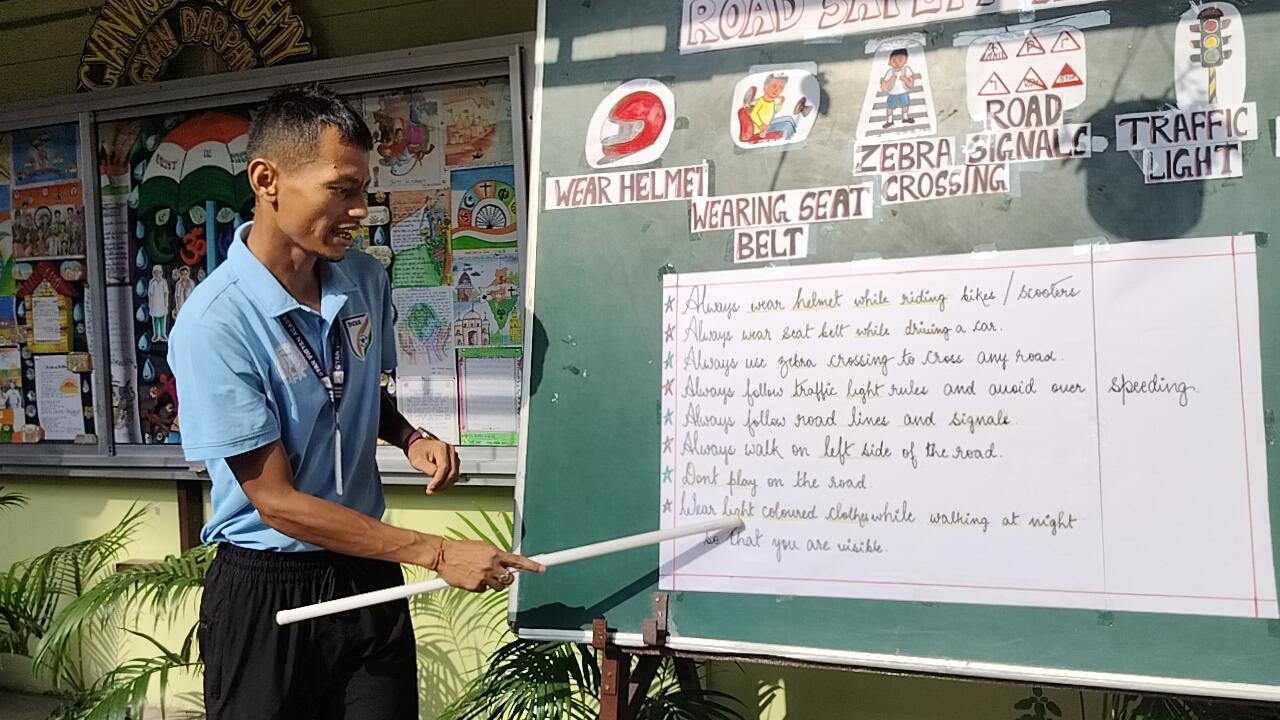 GYANVIGYAN ACADEMY
GYAN DARPAN
ROAD SAFETY
WEAR HELMET
WEARING SEAT
BELT
ZEBRA
CROSSING
ROAD
SIGNALS
TRAFFIC
LIGHT
Always wear helmet while riding bikes / scooters
Always wear seat belt while driving a car.
Always use zebra crossing to cross any road.
Always follow traffic light rules and avoid over speeding.
Always follow road lines and signals.
Always walk on left side of the road.
Dont play on the road.
Wear light coloured clothes while walking at night
so that you are visible.